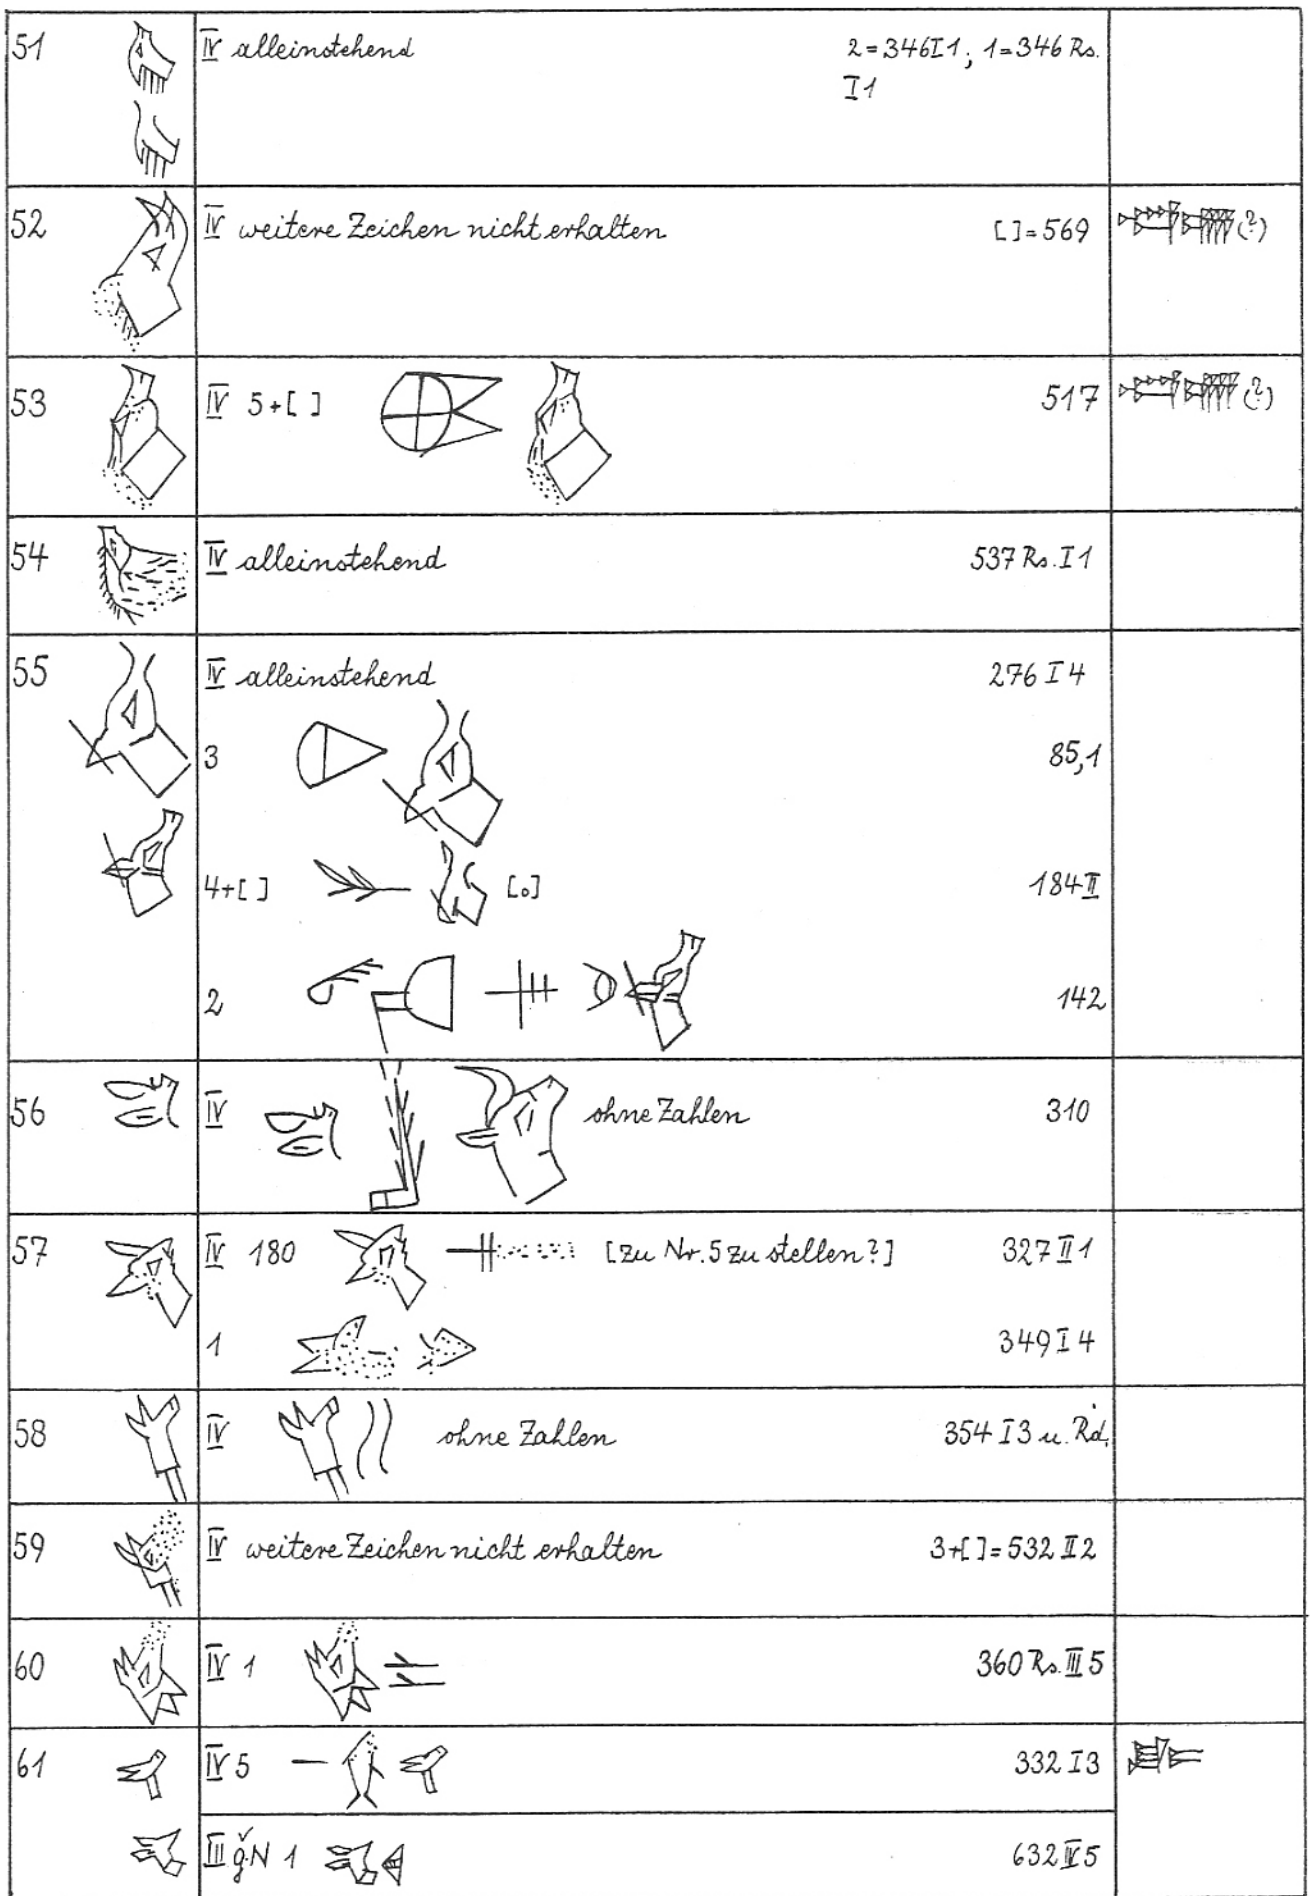 51 IV alleinstehend 2=346I1; 1=346 Rs.
I1
52 IV weitere Zeichen nicht erhalten [ ]=569 (?)
53 IV 5+[ ] 517 (?)
54 IV alleinstehend 537 Rs. I1
55 IV alleinstehend 276 I 4
3 85,1
4+[ ] [o] 184 II
2 142
56 IV ohne Zahlen 310
57 IV 180 [zu Nr. 5 zu stellen?] 327 II 1
1 349 I 4
58 IV ohne Zahlen 354 I 3 u. Rd.
59 IV weitere Zeichen nicht erhalten 3+[ ]=532 II 2
60 IV 1 360 Rs. III 5
61 IV 5 332 I 3
III ǧN 1 632 IV 5